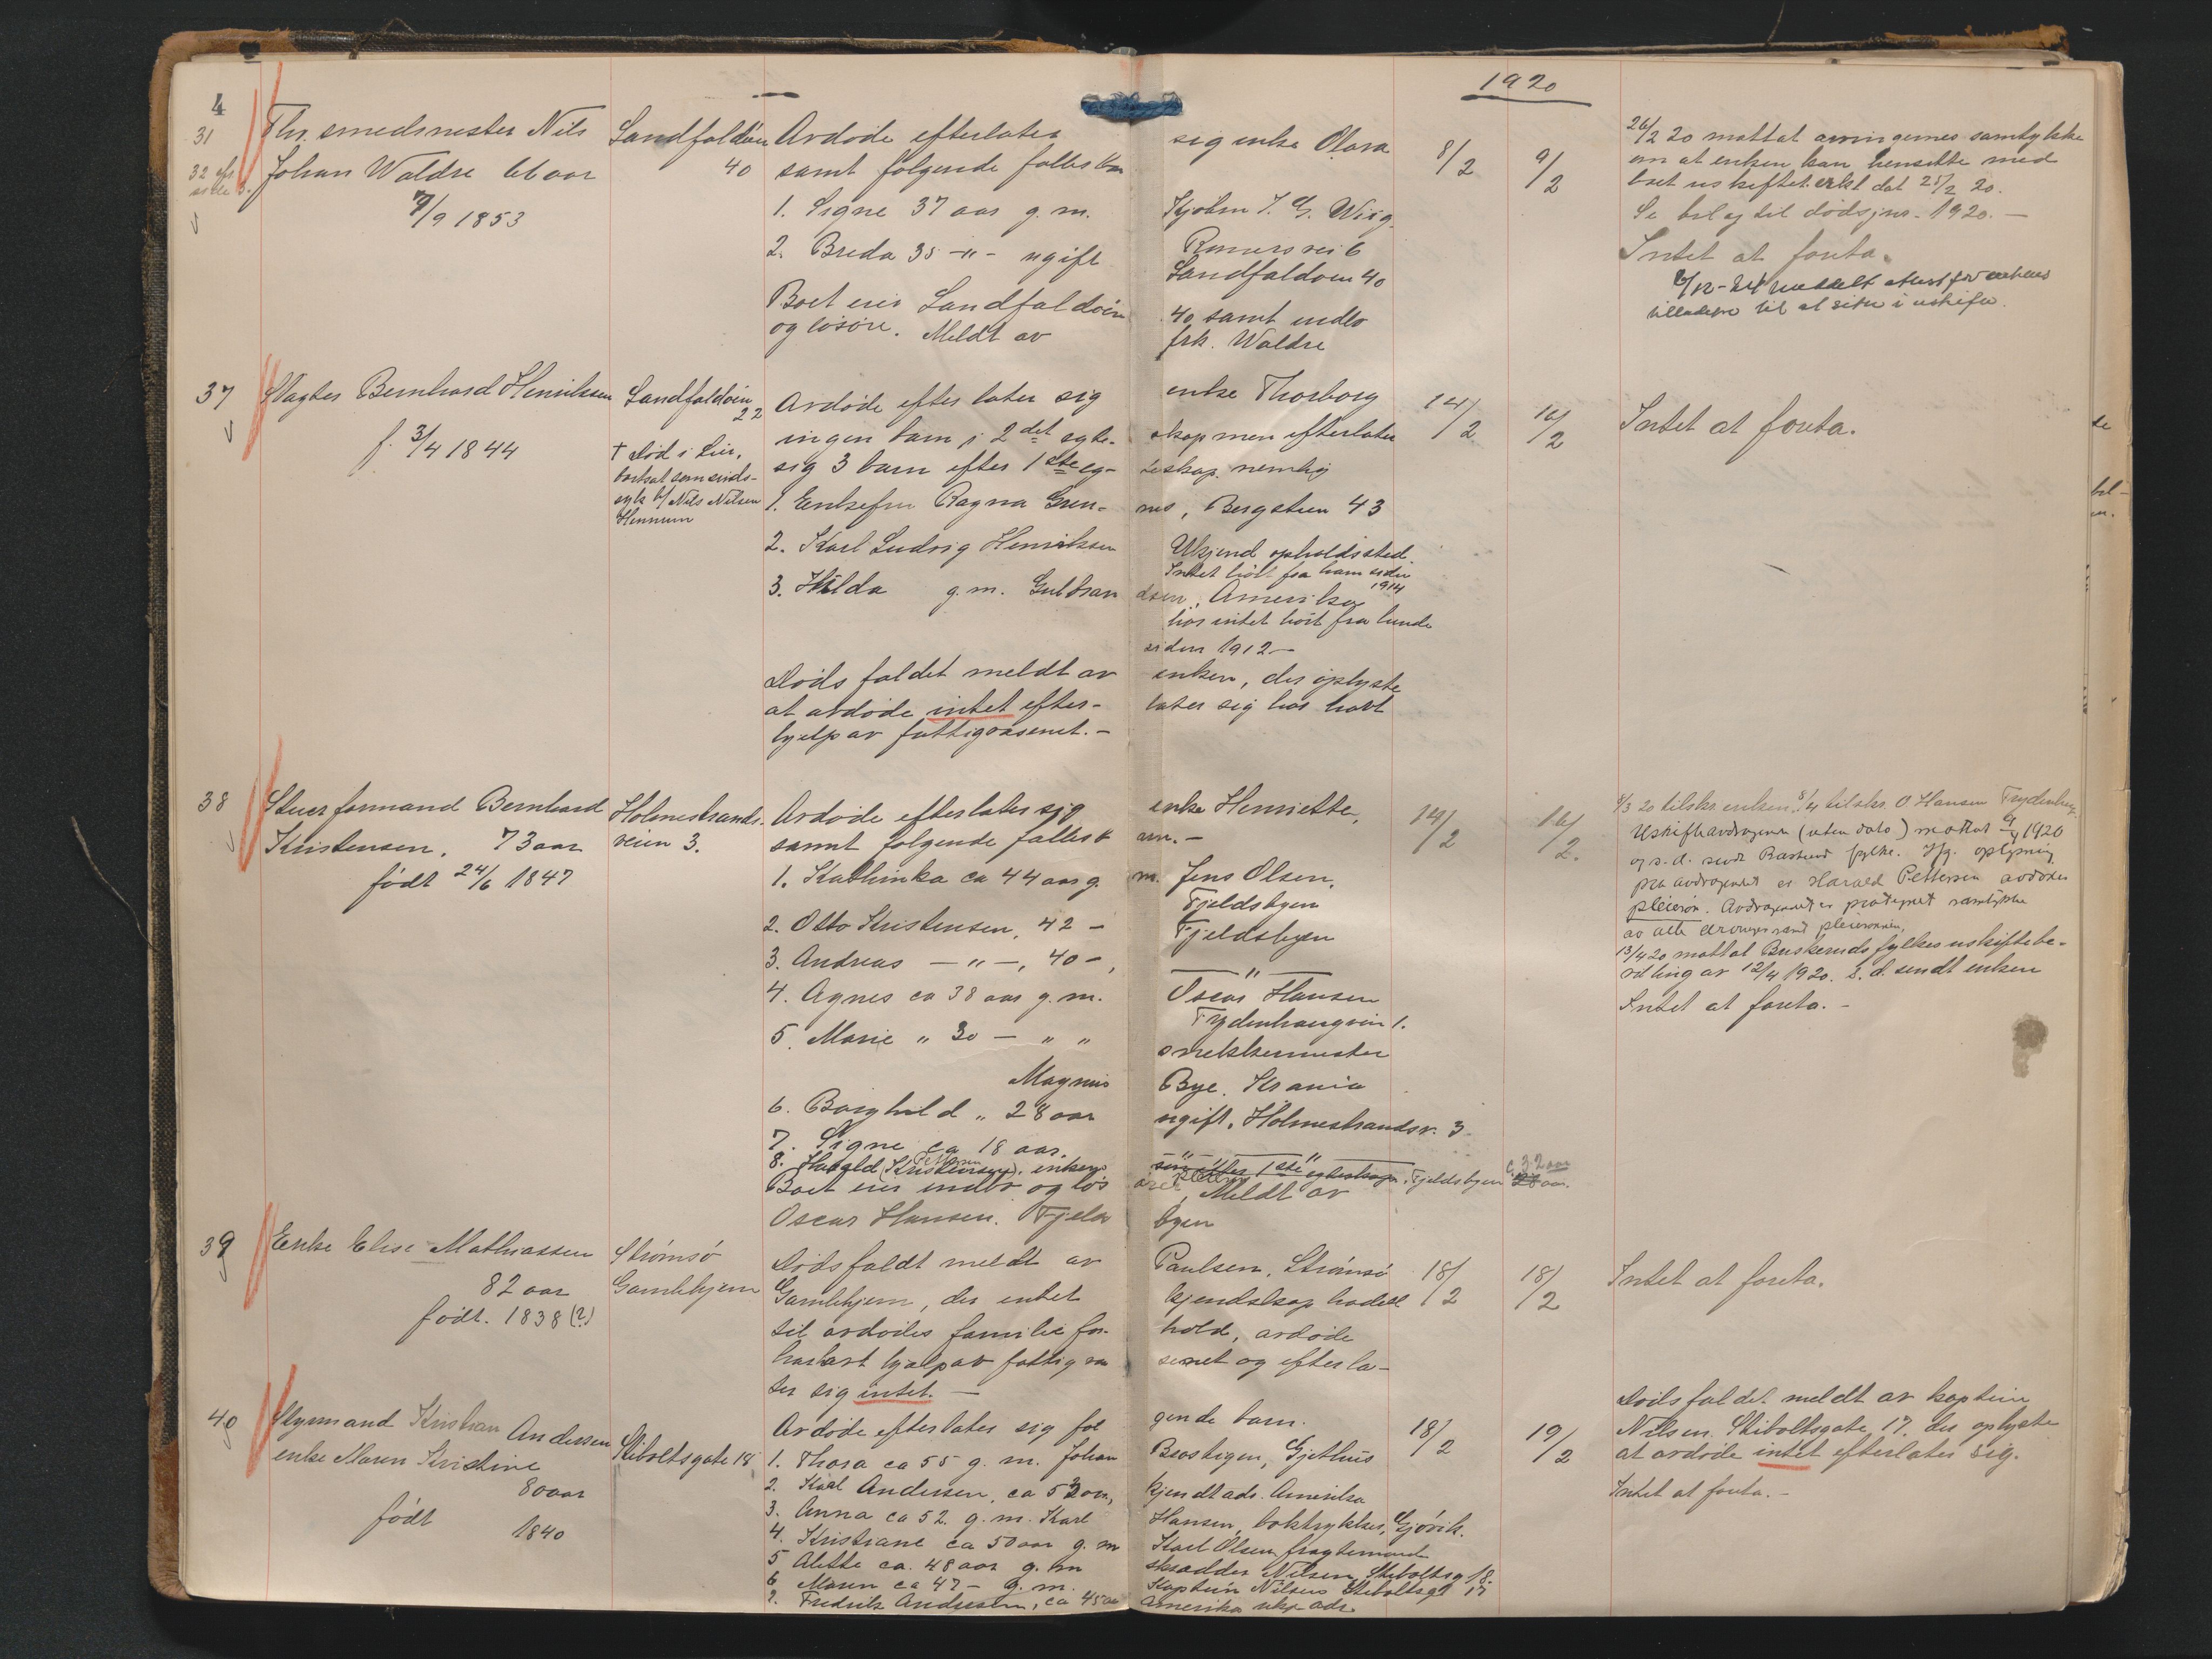 1920
4
31
32 efr
side 3.
Fhv. smedmester Nils
Johan Waldre 66 aar
7/9 1853
Landfaldöen
40
Avdöde efterlater sig enke Olava
samt følgende fælles barn
1. Signe 37 aar g. m. Kjøbm J. G. Wiig
Rømersvei 6
2. Breda 35 -"- ugift Landfaldöen 40
Boet eier Landfaldöen 40 samt indbo
og lösöre. Meldt av frk. Waldre
8/2
9/2
26/2 20 mottat arvingernes samtykke
om at enken kan hensitte med
boet uskiftet. erkl dat 25/2 20.
Se bilag til dödsjur. 1920. —
Intet at foreta.
6/12-24 utstedt attest for enkens
tilladelse til at sitte i uskifte.
37
Vagter Bernhard Henriksen
f. 3/4 1844
Landfaldöen
22
† död i Lier,
bortsat som sinds-
syk b/ Nils Nilsen
Hennum
Avdöde efterlater sig enke Thorborg
ingen barn i 2det egte- skap men efterlater
sig 3 barn efter 1ste eg- teskap nemlig
1. Enkefru Ragna Gren- nes, Bergstien 43
2. Karl Ludvig Henriksen Ukjend opholdssted
Intet hört fra ham siden
1914
3. Hilda g. m. Gulbran dsen, Amerika
har intet hört fra hende
siden 1912 —
Dödsfaldet meldt av enken, der oplyste
at avdöde intet efter- later sig har havt
hjelp av fattigvæsenet. —
14/2
16/2
Intet at foreta.
38
Stuerformand Bernhard
Kristensen. 73 aar
födt 24/6 1847
Holmestrands-
veien 3.
Avdöde efterlater sig enke Henriette,
samt følgende fælles b arn. —
1. Kathinka ca 44 aar g. m. Jens Olsen,
Fjeldsbyen
2. Otto Kristensen, 42 — Fjeldsbyen
3. Andreas — " —, 40 —, — " —
4. Agnes ca 38 aar g. m. Oscar Hansen
Frydenhaugvein 1.
5. Marie " 30 — " " snekkermester
Magnus Bye. Krania
6. Borghild " 28 aar ugift, Holmestrandsv. 3
7. Signe ca 18 aar. — " — " —
8. Harald (Kristensen) Pettersen, enkens sön efter 1ste egteskap. Fjeldsbyen 28 aar.
c. 32 aar
pleiesön
Boet eier indbo og lös öre, Meldt av
Oscar Hansen. Fjeld byen
14/2
16/2.
9/3 20 tilskr. enken. 8/4 tilskr. O Hansen Frydenhaug.
Uskifteandragende (uten dato) mottat 9/4 1920
og s. d. sendt Buskerud fylke. Ifg. oplysning
paa andragendet er Harald Pettersen avdödes
pleiesön. Andragendet er paategnet samtykke
av alle arvinger samt pleiesönnen.
13/4 20 mottat Buskeruds fylkes uskiftebe-
villing av 12/4 1920. s. d. sendt enken
Intet at foreta. —
39
Enke Elise Mathiassen
82 aar
födt. 1838 (?)
Strömsö
Gamlehjem
Dödsfaldt meldt av Paulsen, Strömsö
Gamlehjem, der intet kjendskap hadde
til avdödes familie for- hold, avdöde
har havt hjelp av fattigvæ senet og efterla-
ter sig intet. —
18/2
18/2
Intet at foreta.
40
Styrmand Kristian Andersen
enke Maren Kristine
80 aar
födt 1840
Stiboltsgate 18
Avdöde efterlater sig föl gende barn.
1. Thora ca 55 g. m. Johan Brostigen, Gjethus
2. Karl Andersen, ca 53 aar, kjendt adr. Amerika
3. Anna ca 52. g. m. Karl Hansen, boktrykker, Gjövik.
4. Kristiane ca 50 aar g. m Karl Olsen fragtemand
5 Alette ca. 48 aar g. m skrædder Nilsen, Stiboltsg 18.
6 Maren ca 47 — g. m. Kaptein Nilsens Stiboltsgt 17
7. Fredrik Andresen, ca 45 aar Amerika ukj. adr.
18/2
19/2
Dödsfaldet meldt av kaptein
Nilsen. Stiboltsgate 17. der oplyste
at avdöde intet efterlater sig.
Intet at foreta. —